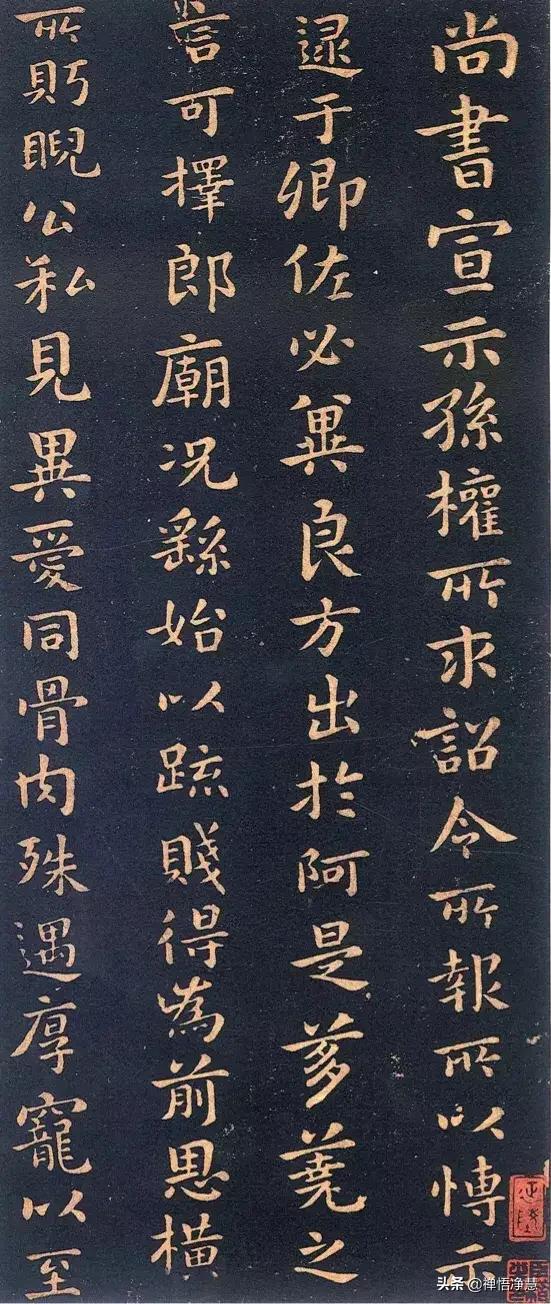 尚書宣示孫權所求詔令所報所以博示
逮于卿佐必冀良方出於阿是芻蕘之
言可擇郎廟況繇始以疏賤得為前恩橫
所眄睨公私見異愛同骨肉殊遇厚寵以至
头条 @禅悟净慧